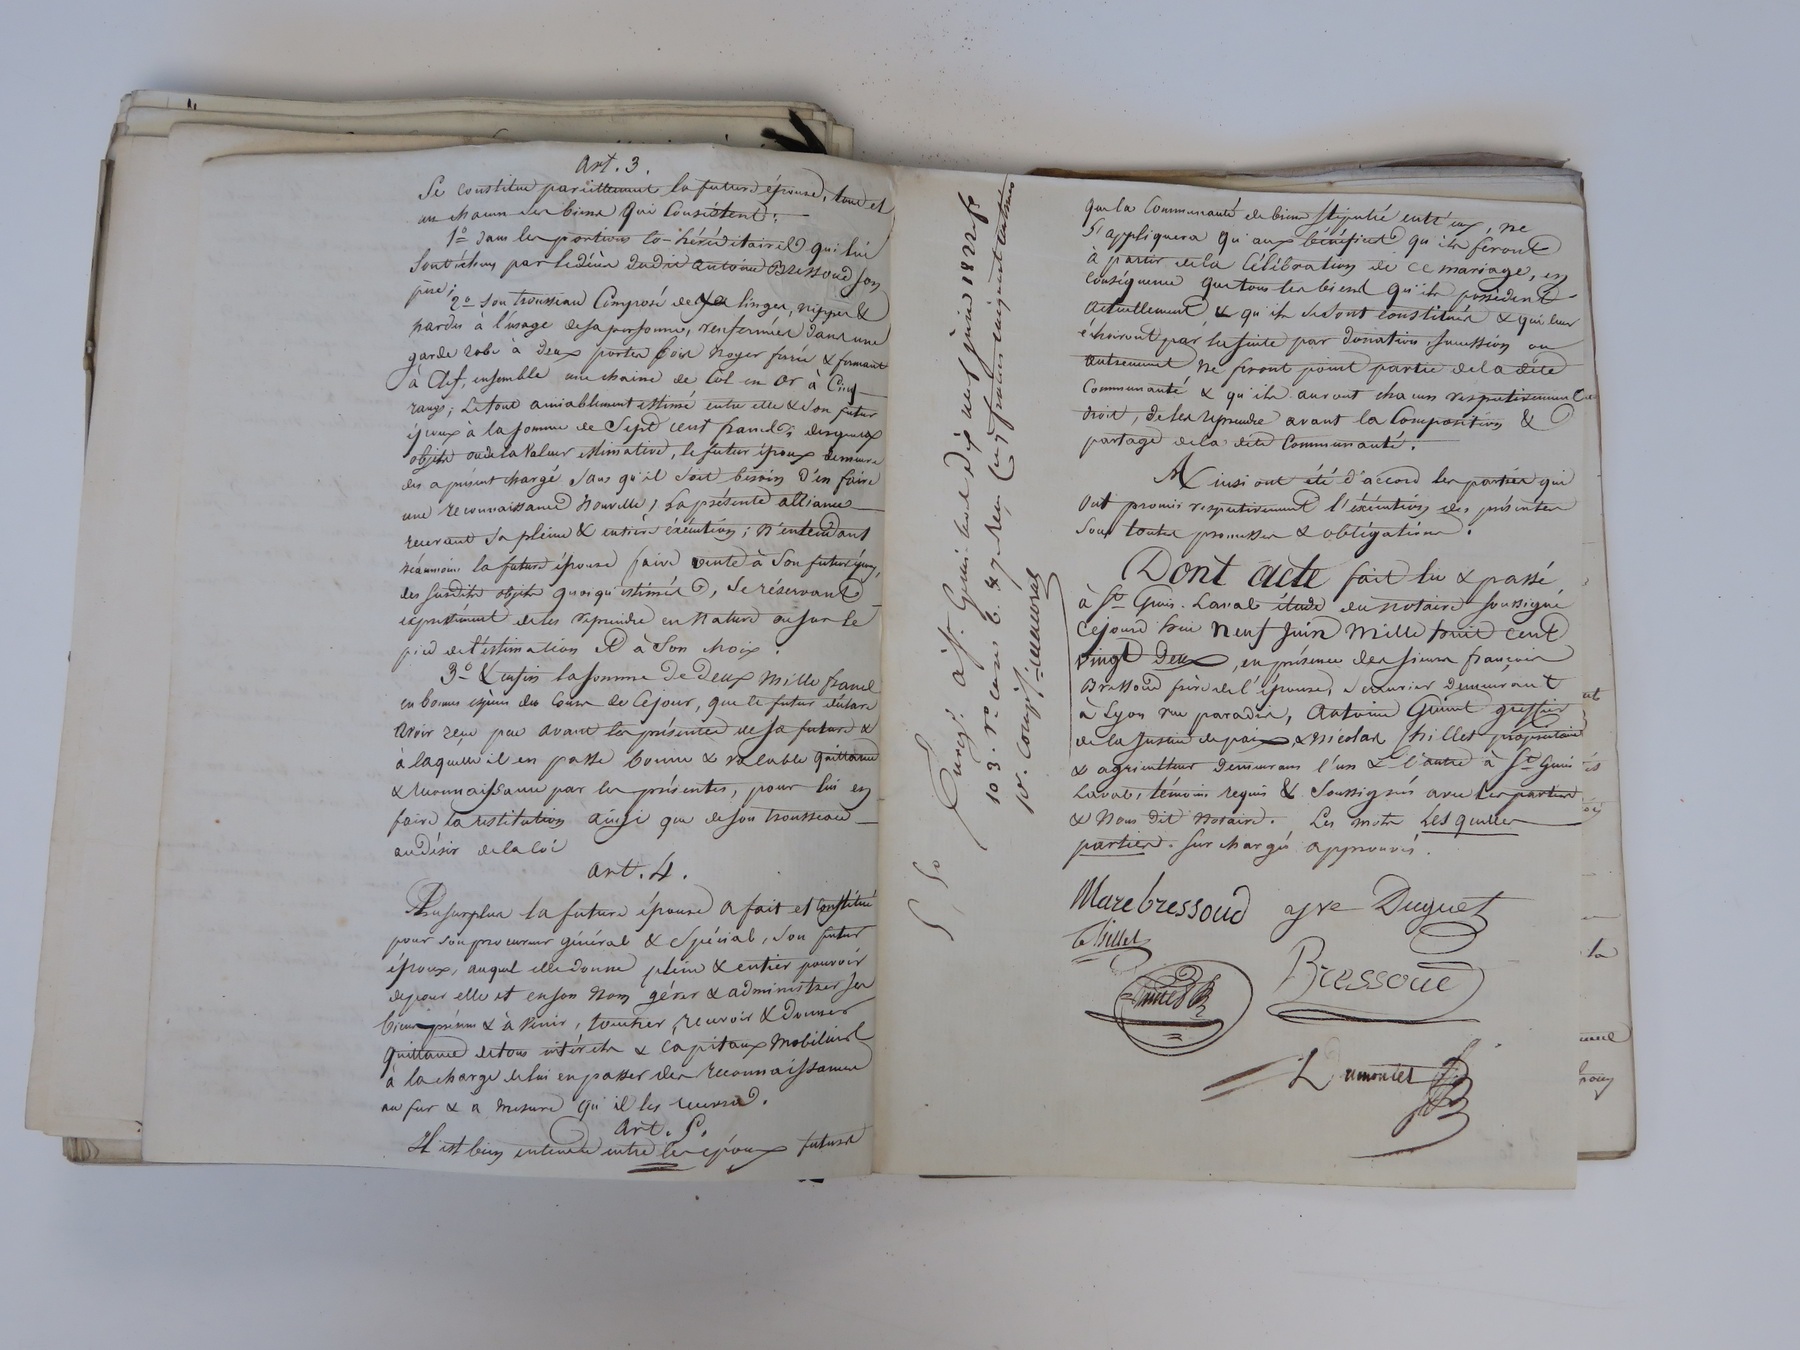 art. 3.
Se constitue pareillement la future épouse, tous et
un chacun ses biens qui consistent:
1o dans les portions co-héréditaires qui lui
sont échus par le décès dudit Antoine Bressoud son
père;
2o son trousseau composé de ses linges, nippes &
hardes à l'usage de sa personne, renfermés dans une
garde robe à deux portes bois noyer ferrée & fermant
à clef, ensemble une chaine de col en or à cinq
rangs; le tout amiablement estimé entre elle & son futur
époux à la somme de sept cent francs; desquels
objets ou de la valeur estimative, le futur époux demeure
dès à présent chargé sans qu'il soit besoin d'en faire
une reconnaissance nouvelle, la présente alliance
recevant sa pleine & entière éxécution; n'entendant
néanmoins la future épouse faire vente à son futur époux,
des susdits objets quoiqu'estimés, se réservant
expressément de les reprendre en nature ou sur le
pied de l'estimation et à son choix.
3o Enfin la somme de deux mille francs
en bonnes espèces du cours de ce jour, que le futur déclare
avoir reçu par avant les présentes de sa future &
à laquelle il en passe bonne & valable quittance
& reconnaissance par les présentes, pour lui en
faire la restitution ainsi que de son trousseau
au désir de la loi
art. 4.
Au surplus la future épouse a fait et constitué
pour son procureur général & spécial, son futur
époux, auquel elle donne plein & entier pouvoir
de pour elle et en son nom gérer & administrer ses
biens présens & à venir, toucher, recevoir & donner
quittance de tous intérêts & capitaux mobiliers
à la charge de lui en passer des reconnaissances
au fur & à mesure qu'il les recevra.
art. 5.
Il est bien entendu entre les époux futurs
Enregé. à St. Genis Laval le dix neuf juin 1822 fo
103. ro cases 6. & 7 Reçu cinq francs cinquante centimes
10e. compris
5,50
que la communauté de biens stipulée entr'eux, ne
s'appliquera qu'aux bénéfices qu'ils feront
à partir de la célébration de ce mariage, en
conséquence que tous les biens qu'ils possèdent
actuellement, & qu'ils se sont constitués & qui leur
écherront par la suite par donation, succession ou
autrement ne feront point partie de la dite
communauté & qu'ils auront chacun respectivement le
droit, de les reprendre avant la composition &
partage de la dite communauté.
Ainsi ont été d'accord les parties qui
ont promis respectivement l'éxécution des présentes
sous toutes promesses & obligations.
Dont acte fait lu & passé
à St. Genis-Laval étude du notaire soussigné
ce jourd'hui neuf juin mille huit cent
vingt deux, en présence des sieurs françois
Bressoud frère de l'épouse, serrurier demeurant
à Lyon rue paradis, Antoine Guint greffier
de la justice de paix & Nicolas Thillet propriétaire
& agriculteur demeurans l'un & l'autre à St. Genis
Laval, témoins requis & soussignés avec les parties
& nous dit notaire. Les mots lesquelles
parties. surchargés approuvés.
Marebressoud Duguet
Thillet
Bressoud
Dumontet